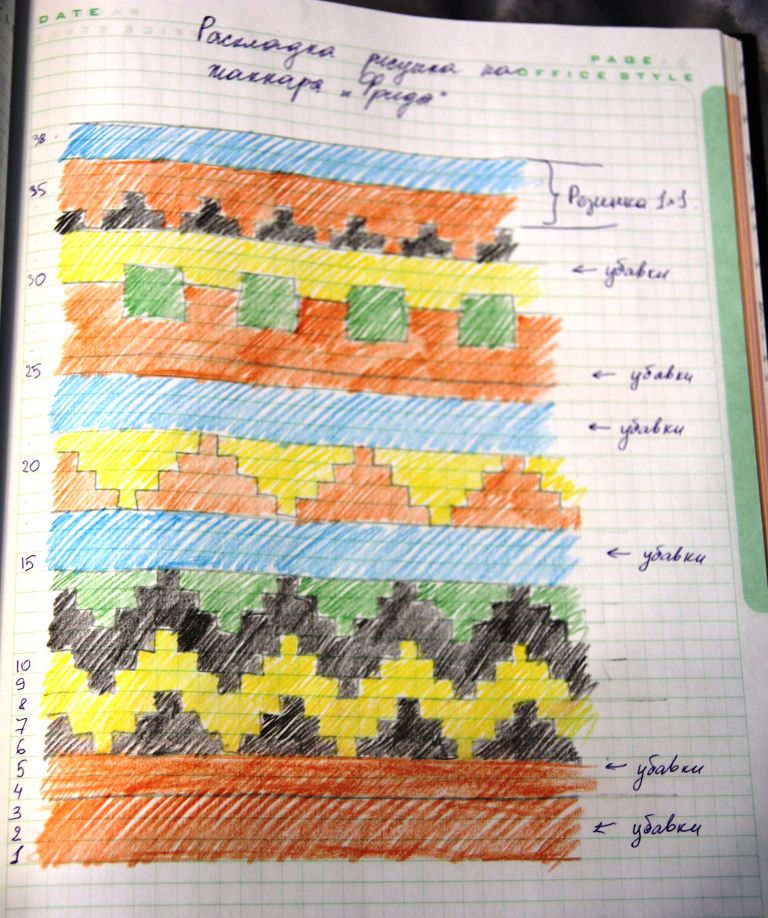 DATE
PAGE
OFFICE STYLE
Раскладка рисунка на
жаккара "рида"
38
35
Резинка 1×1.
30
← убавки
25
← убавки
← убавки
20
15
← убавки
10
9
8
7
6
5
← убавки
4
3
2
← убавки
1